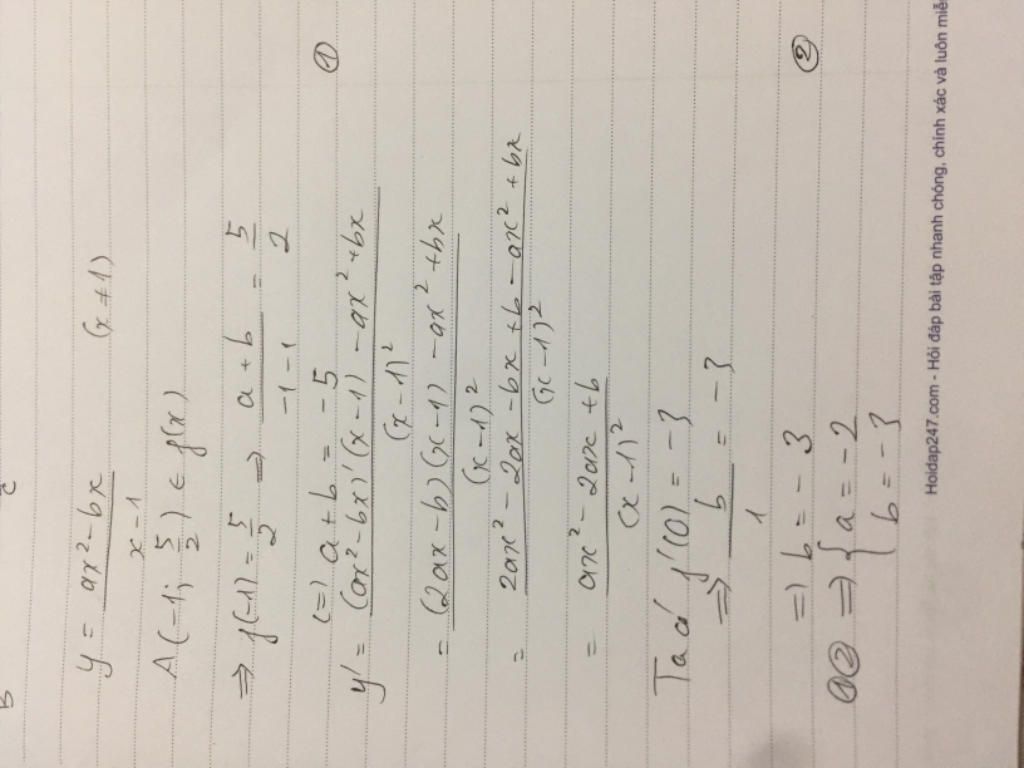 B C
y = \frac{ax² - bx}{x - 1} (x ≠ 1)
A(-1; \frac{5}{2}) ∈ f(x)
⇒ f(-1) = \frac{5}{2} ⇒ \frac{a + b}{-1 - 1} = \frac{5}{2}
(=) a + b = -5 ①
y' = \frac{(ax² - bx)'(x - 1) - ax² + bx}{(x - 1)²}
= \frac{(2ax - b)(x - 1) - ax² + bx}{(x - 1)²}
= \frac{2ax² - 2ax - bx + b - ax² + bx}{(x - 1)²}
= \frac{ax² - 2ax + b}{(x - 1)²}
Ta có f'(0) = -3
⇒ \frac{b}{1} = -3
=) b = -3 ②
①② ⇒ { a = -2
b = -3
Hoidap247.com - Hỏi đáp bài tập nhanh chóng, chính xác và luôn miễ